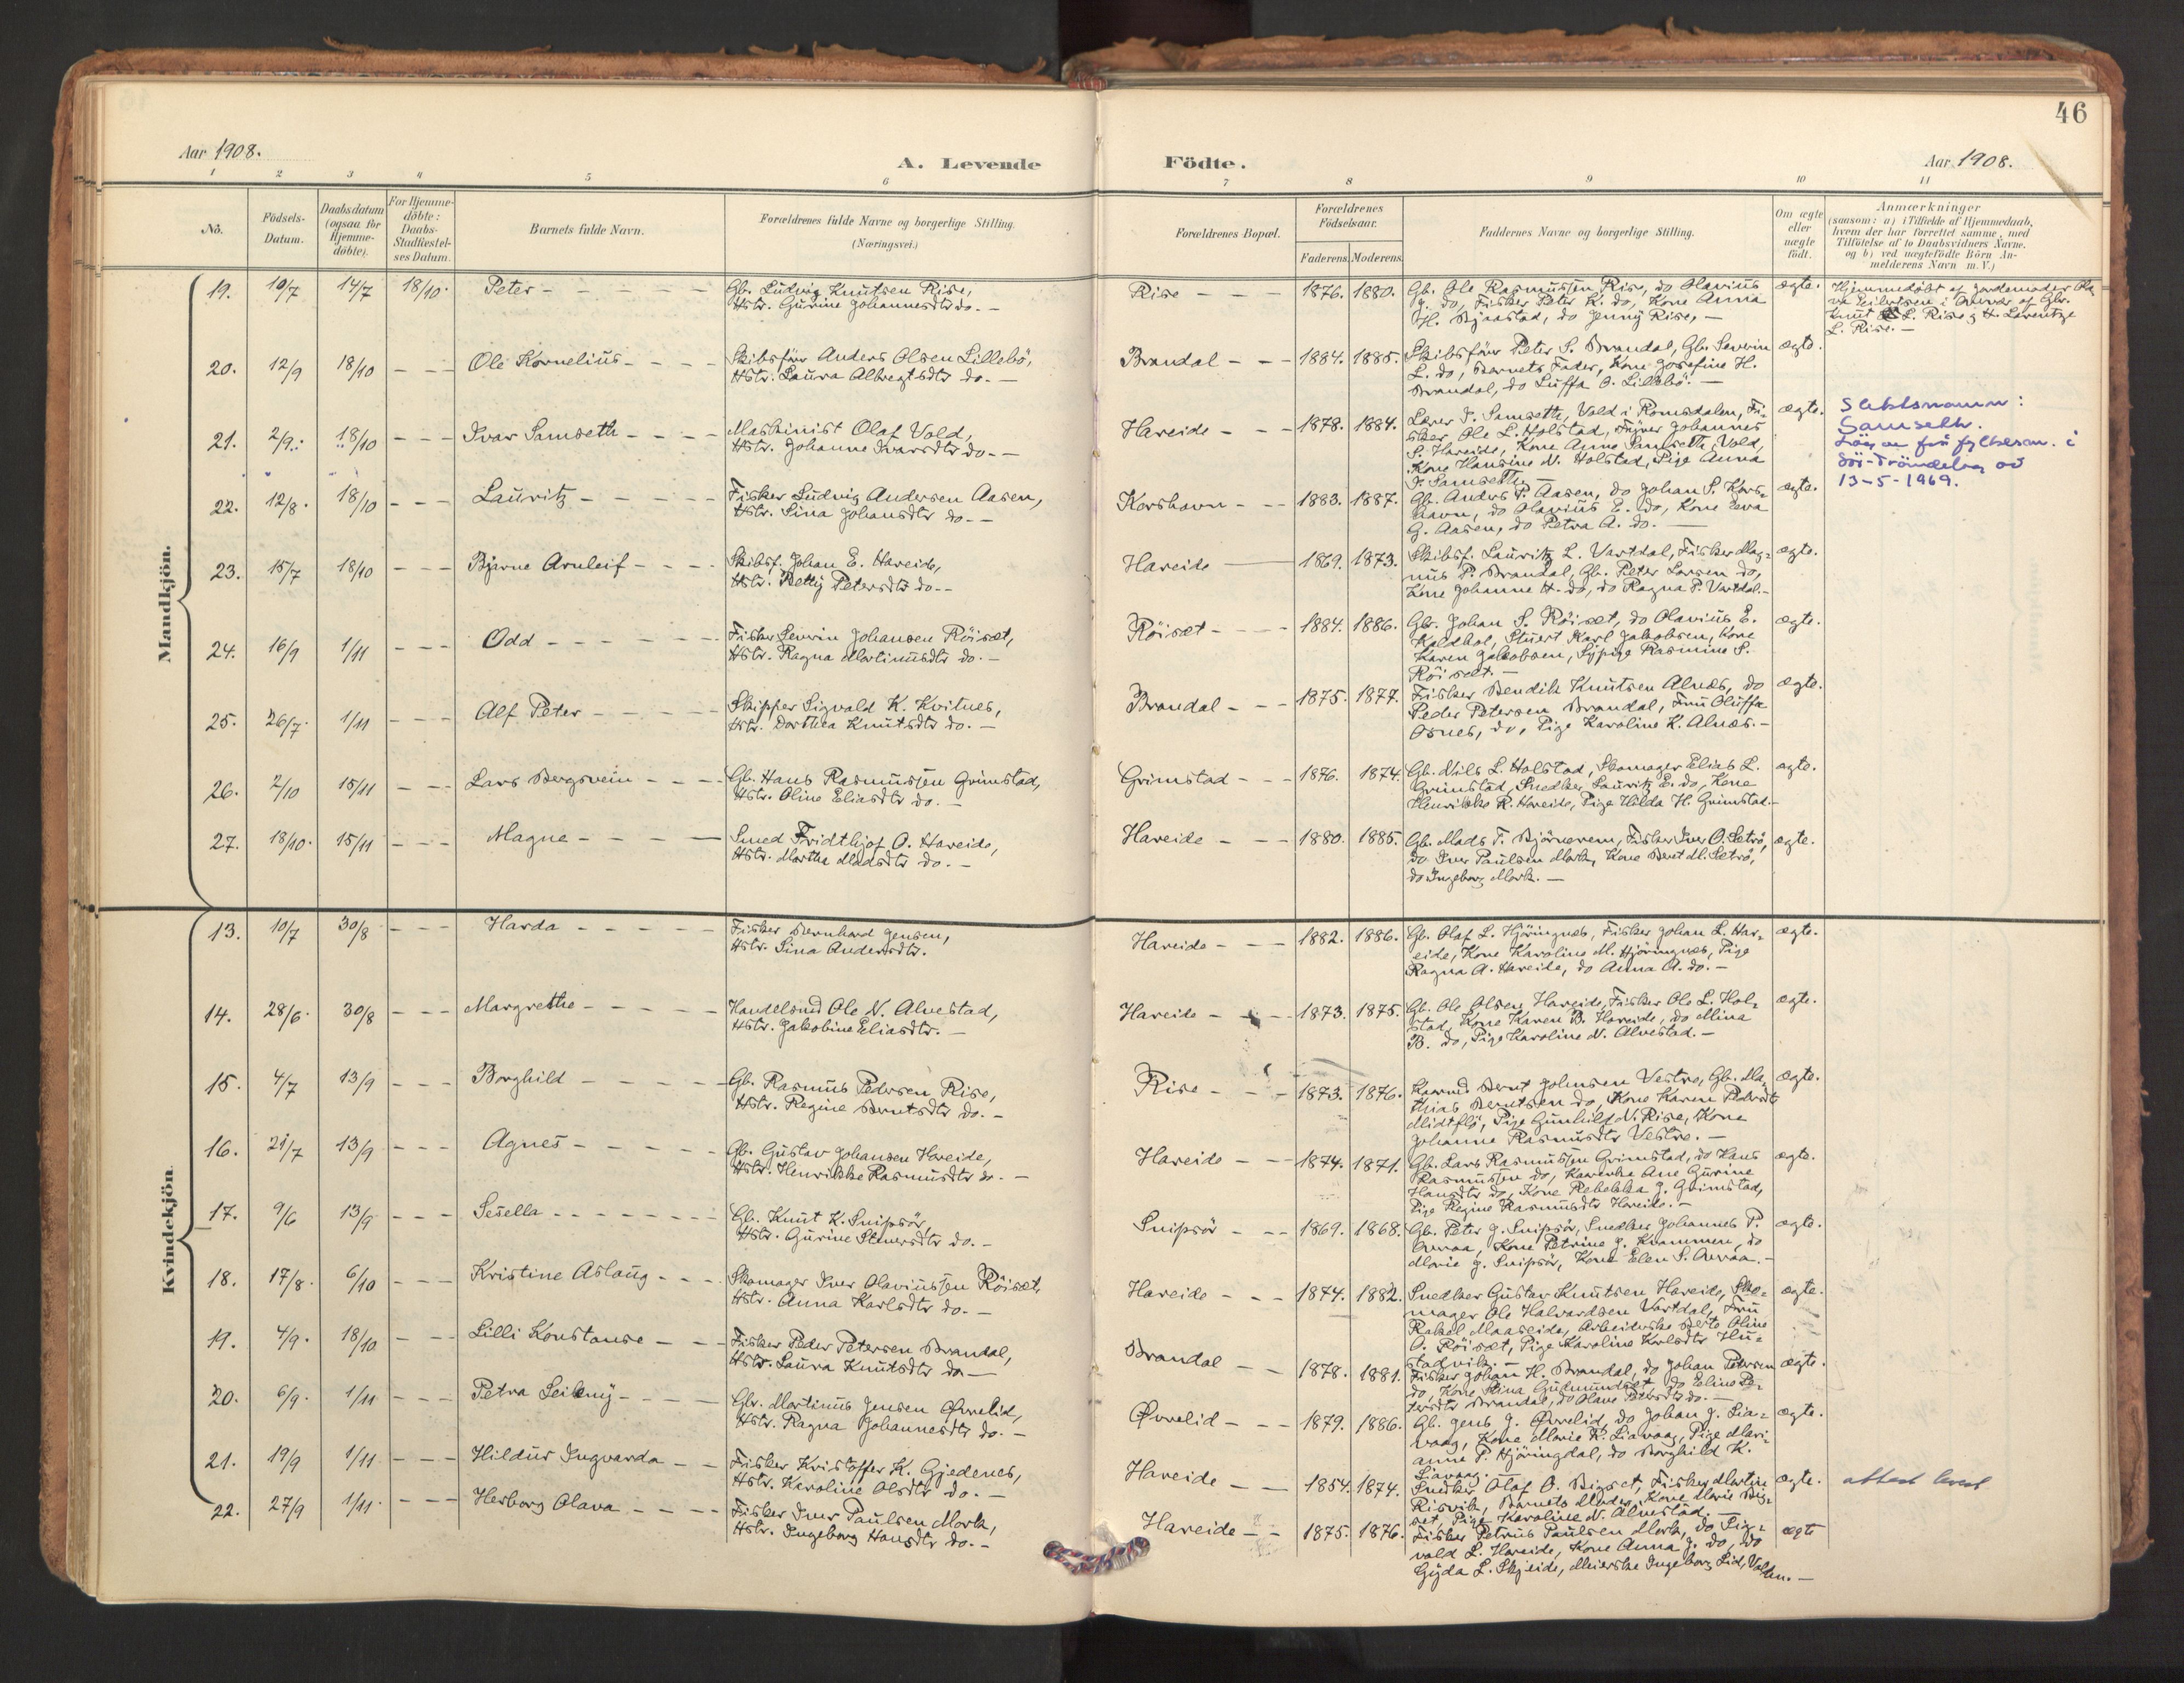 46
Aar 1908.
A. Levende
Födte.
Aar 1908.
1 2 3 4 5 6 7 8 9 10 11
No.
Födsels-Datum.
Daabsdatum (ogsaa for Hjemme-döbte).
For Hjemme-döbte: Daabs-Stadfæstel-ses Datum.
Barnets fulde Navn.
Forældrenes fulde Navne og borgerlige Stilling.
(Næringsvei.)
Forældrenes Bopæl.
Forældrenes Födselsaar.
Faderens. Moderens.
Faddernes Navne og borgerlige Stilling.
Om ægte eller uægte födt.
Anmærkninger
(saasom: a) i Tilfælde af Hjemmedaab,
hvem der har forrettet samme, med
Tilföielse af to Daabsvidners Navne.
og b) ved uægtefödte Börn An-
melderens Navn m. V.)
Mandkjön.
19. 10/7 14/7 18/10. Peter
Gb. Ludvig Knutsen Rise,
Hstr. Gurine Johannesdtr do.
Rise 1876. 1880.
Gb. Ole Rasmussen Rise, do Olavius
J. do, Fisker Peter K. do, Kone Anna
H. Bjaastad, do Jenny Rise,
ægte.
Hjemmedöbt af Jordemoder
Knut L. Rise & H. Lorentze
L. Rise.
20. 12/9 18/10 Ole Kornelius
Skibsförer Anders Olsen Lillebö,
Hstr. Laura Albregtsdtr do.
Brandal 1884. 1885.
Skibsförer Peter S. Brandal, Gb. Severin
L. do, Barnets Fader, Kone Josefine H.
Brandal, do Luffa O. Lillebö.
ægte.
21. 2/9. 18/10 Ivar Samseth
Maskinist Olaf Vold,
Hstr. Johanne Ivarsdtr do.
Hareide 1878. 1884.
Lærer I. Samseth, Vold i Romsdalen, Fi-
sker Ole L. Holstad, Johannes
S. Hareide, Kone Anne Samseth, Vold,
Kone Hansine N. Holstad, Pige Anna
I. Samseth.
ægte.
Slektsnamn:
Samseth.
fylkesm. i
Sör-Tröndelag av
13-5-1969.
22. 12/8. 18/10 Lauritz
Fisker Ludvig Andersen Aasen,
Hstr. Sina Johansdtr do.
Korshavn 1883. 1887.
Gb. Anders P. Aasen, do Johan S. Kors-
havn, do Olavius E. do, Kone
G. Aasen, do Petra A. do.
ægte.
23. 15/7 18/10 Bjarne Arnleif
Skibsf. Johan E. Hareide,
Hstr. Betty Petersdtr do.
Hareide 1869. 1873.
Skibsf. Lauritz L. Vartdal, Fisker Mag-
nus P. Brandal, Gb. Peter Larsen do,
Kone Johanne H. do, do Ragna P. Vartdal.
ægte.
24. 16/9 1/11 Odd
Fisker Severin Johansen Röiset,
Hstr. Ragna Martinusdtr do.
Röiset 1884. 1886.
Gb. Johan S. Röiset, do Olavius E.
Kaldhol, Stuert Karl Jakobsen, Kone
Karen Jakobsen, Sypige Rasmine S.
Röiset.
ægte.
25. 26/7. 1/11 Alf Peter
Skipper Sigvald K. Kvitnes,
Hstr. Dorthea Knutsdtr do.
Brandal 1875. 1877.
Fisker Bendik Knutsen Alnæs, do
Peder Petersen Brandal, Fru Oluffa
Osnes, do, Pige Karoline K. Alnæs.
ægte.
26. 2/10 15/11 Lars Bergsvein
Gb. Hans Rasmussen Grimstad,
Hstr. Oline Eliasdtr do.
Grimstad 1876. 1874.
Gb. Nils L. Holstad, Skomager Elias L.
Grimstad, Snedker Lauritz E. do, Kone
Henrikke R. Hareide, Pige Hilda H. Grimstad.
ægte.
27. 18/10. 15/11 Magne
Smed Fridthjof O. Hareide,
Hstr. Marthe Madsdtr do.
Hareide 1880. 1885.
Gb. Mads T. Björnerem, Fisker Iver O. Setrö,
do Iver Paulsen Mork, Kone Beret M. Setrö,
do Ingeborg Mork.
ægte.
Kvindekjön
13. 10/7 30/8 Harda
Fisker Bernhard Jensen,
Hstr. Sina Andersdtr.
Hareide 1882. 1886.
Gb. Olaf L. Hjöringnes, Fisker Johan L. Har-
eide, Kone Karoline M. Hjöringnes, Pige
Ragna A. Hareide, do Anna A. do.
ægte.
14. 28/6. 30/8 Margrethe
Handelsmd Ole N. Alvestad,
Hstr. Jakobine Eliasdtr.
Hareide 1873. 1875.
Gb. Ole Olsen Hareide, Fisker Ole L. Hol-
stad, Kone Karen B. Hareide, do Mina
B. do, Pige Karoline N. Alvestad.
ægte.
15. 4/7 13/9 Borghild
Gb. Rasmus Pedersen Rise,
Hstr. Regine Berntsdtr do.
Rise 1873. 1876.
Bernt Johnsen Vestre, Gb. Ma-
thias Berntsen do, Kone Karen Pedersdtr
Midtflö, Pige Gunhild N. Rise, Kone
Johanne Rasmusdtr Vestre.
ægte.
16. 21/7 13/9 Agnes
Gb. Gustav Johansen Hareide,
Hstr. Henrikke Rasmusdtr do.
Hareide 1874. 1871.
Gb. Lars Rasmussen Grimstad, do Hans
Rasmussen do, Ane Gurine
Hansdtr do, Kone Rebekka J. Grimstad,
Pige Regine Rasmusdtr Hareide.
ægte.
17. 9/6 13/9 Sesella
Gb. Knut K. Snipsör,
Hstr. Gurine Steneredtr do.
Snipsör 1869. 1868.
Gb. Peter J. Snipsör, Snedker Johannes P.
Overaa, Kone Petrine J. Krammen, do
Marie J. Snipsör, Kone Elen S. Overaa.
ægte.
18. 17/8. 6/10 Kristine Aslaug
Skomager Iver Olaviussen Röiset,
Hstr. Anna Karlsdtr do.
Hareide 1874. 1882.
Snedker Gustav Knutsen Hareide, Sko-
mager Ole Halvardsen Vartdal, Fru
Rakel Maaseide, Arbeiderske Berte Oline
O. Röiset, Pige Karoline Karlsdtr Hu-
stadvik.
ægte.
19. 4/9. 18/10 Lilli Konstanse
Fisker Peder Petersen Brandal,
Hstr. Laura Knutsdtr do
Brandal 1878. 1881.
Fisker Johan H. Brandal, do Johan Petersen
do, Kone Stina Gudmundset, do Eline Pe-
tersdtr Brandal, do Olave Petersdtr do.
ægte.
20. 6/9. 1/11 Petra Leikny
Gbr. Martinus Jensen Øvrelid,
Hstr. Ragna Johannesdtr do.
Øvrelid 1879. 1886.
Gb. Jens J. Øvrelid, do Johan J. Lia-
vaag, Kone Marie K. Liavaag, Pige Mari-
anne P. Hjöringdal, do Borghild K.
Liavaag.
ægte.
21. 19/9 1/11 Hildur Ingvarda
Fisker Kristoffer K. Gjedenes,
Hstr. Karoline Olsdtr do.
Hareide 1854. 1874.
Snedker Olaf O. Bigset, Fisker Martin
Risvik, Barnets Moder, Kone Marie Big-
set, Pige Karoline N. Alvestad.
ægte.
attest
22. 27/9 1/11. Herborg Olava
Fisker Iver Paulsen Mork,
Hstr. Ingeborg Hansdtr do.
Hareide 1875. 1876.
Fisker Petrus Paulsen Mork, do Sig-
vald L. Hareide, Kone Anna J. do, do
Gyda L. Skjeide, Meierske Ingeborg Lid, Volden.
ægte